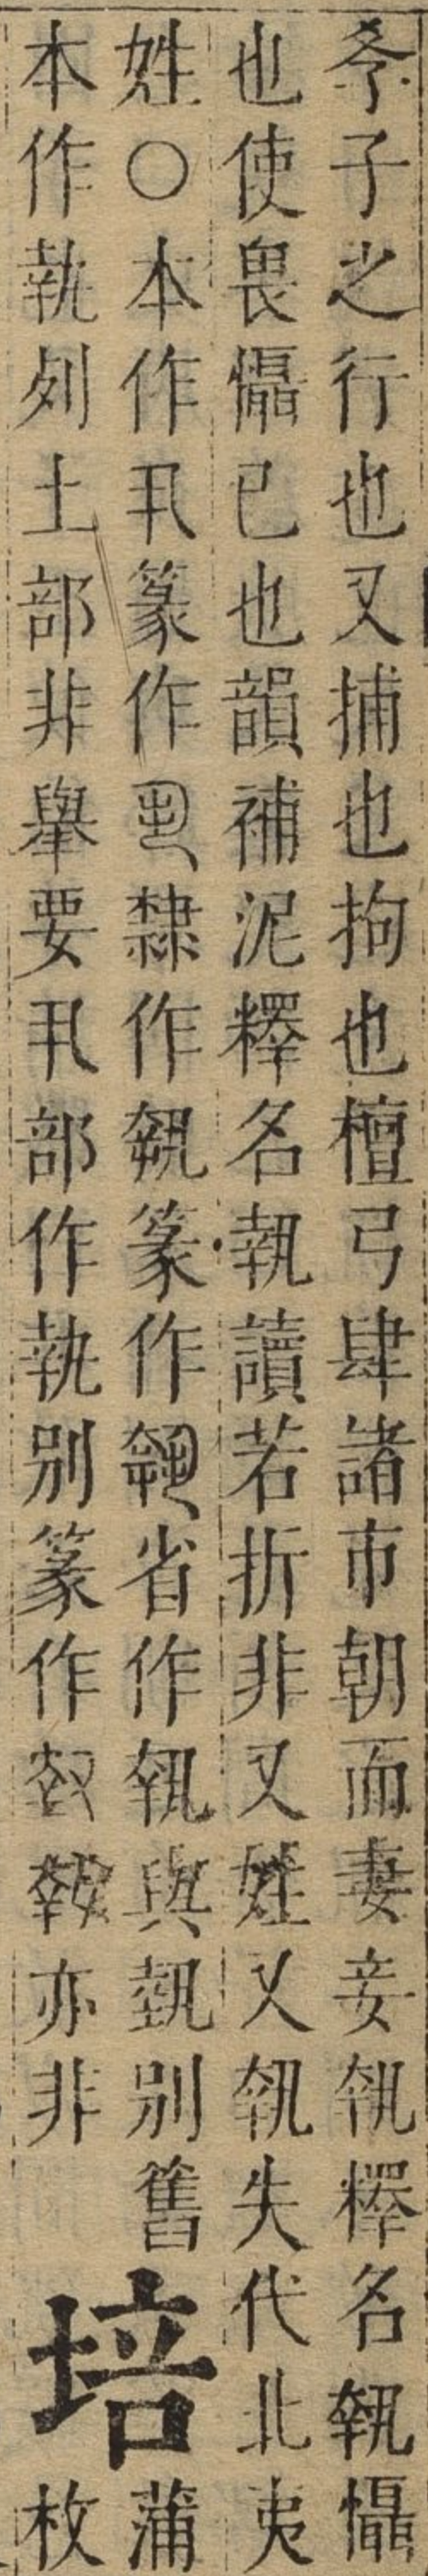 孝子之行也又捕也拘也檀弓肆諸市朝而妻妾執釋名執懾
也使畏懾已也韻補泥釋名執讀若折非又姓又執失代北夷
姓○本作丮篆作隸作篆作省作執與埶别舊
本作執列土部非舉要丮部作執别篆作亦非
培
蒲
枚